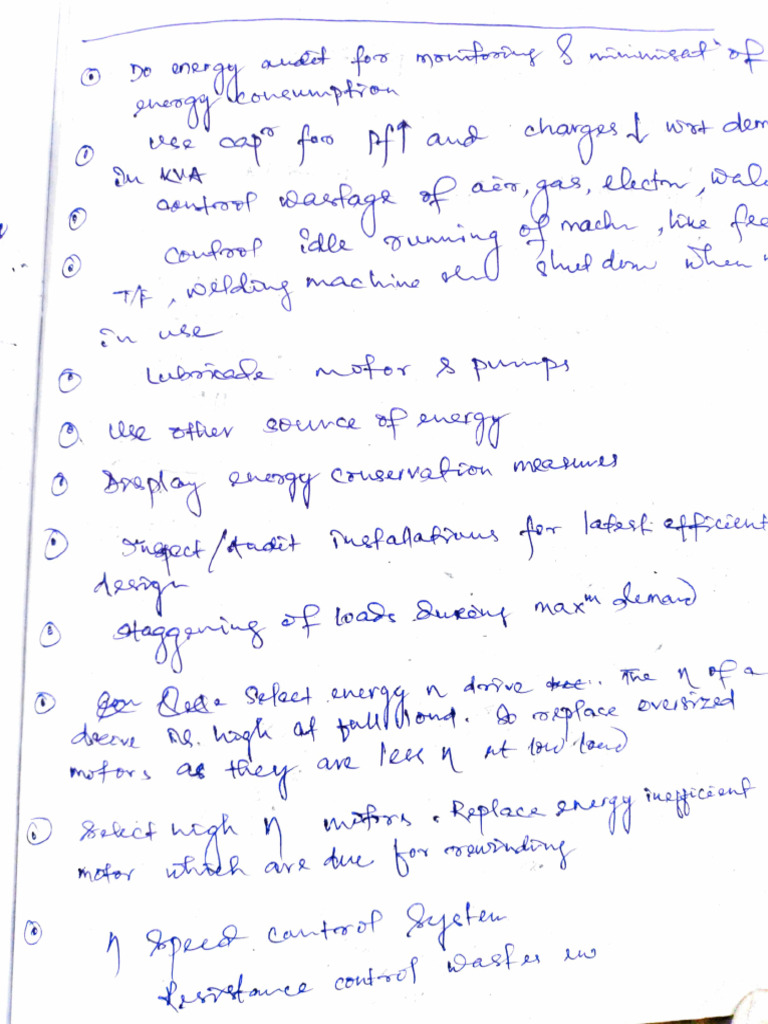 Do energy audit for monitoring & minimisatⁿ of
energy consumption
Use capʳ for Pf↑ and charges↓ wrt dem
in KVA
control wastage of air, gas, electrn, wat
control idle running of machn, like fee
T/F, welding machine shd shut down when
in use
Lubricate motor & pumps
Use other source of energy
Display energy conservation measures
Inspect/Audit installations for latest efficient
design
Staggering of loads during maxᵐ demand
Select energy η drive. The η of a
drive is high at full load. So replace oversized
motors as they are less η at low load
Select high η motors. Replace energy inefficient
motor which are due for rewinding
η Speed control System
Resistance control wastes en